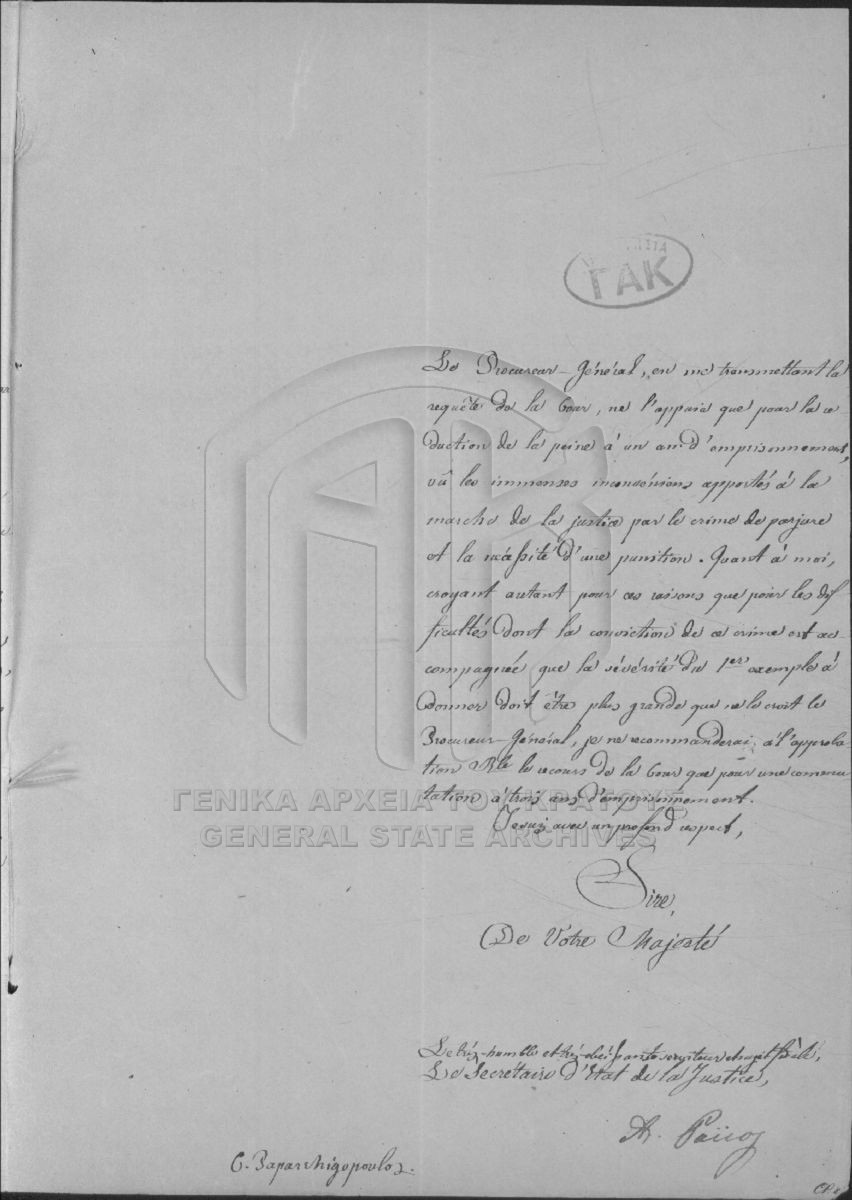 ΓΑΚ
Le Procureur-Général, en me transmettant la
requête de la Cour, ne l'appuie que pour la ré-
duction de la peine à un an d'emprisonnement,
vû les immenses inconvéniens apportés à la
marche de la justice par le crime de parjure
et la nécéssité d'une punition. Quant à moi,
croyant autant pour ces raisons que pour les dif
ficultés dont la conviction de ce crime est ac-
compagnée que la sévérité du 1er exemple à
donner doit être plus grande que ne le croit le
Procureur-Général, je ne recommanderai à l'approba-
tion Rle le recours de la Cour que pour une commu
tation a trois ans d'emprisonnement.
ΓΕΝΙΚΑ ΑΡΧΕΙΑ ΤΟΥ ΚΡΑΤΟΥΣ
Je suis avec un profond respect,
GENERAL STATE ARCHIVES
Sire,
De Votre Majesté
Le très-humble et très-obéissant serviteur et sujet fidèle,
Le Secrétaire d'Etat de la Justice,
C. Paparrhigopoulos.